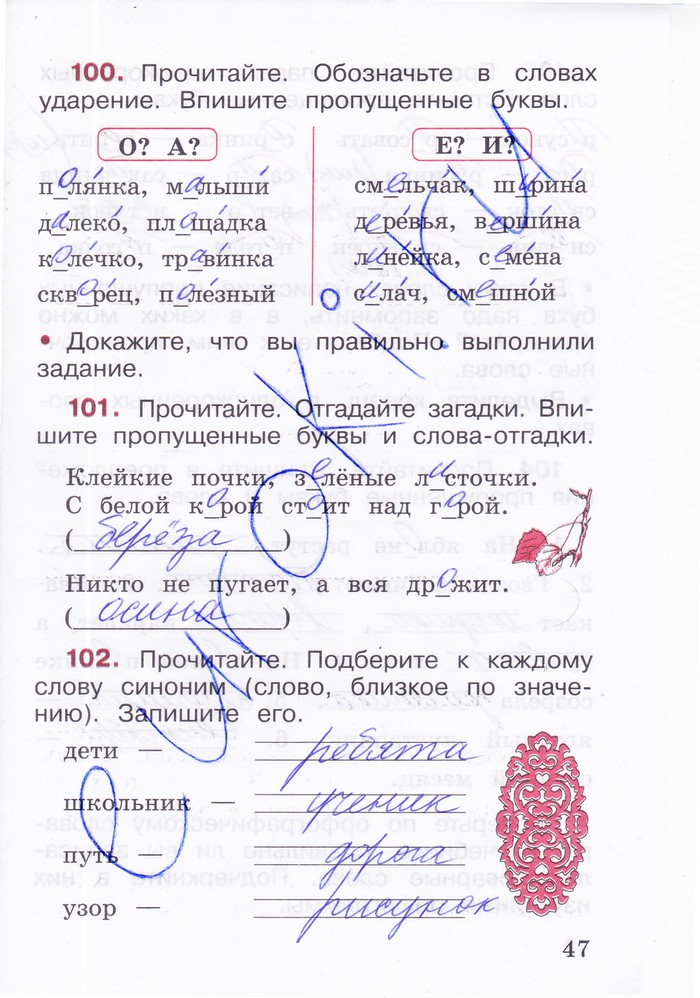 100. Прочитайте. Обозначьте в словах
ударение. Впишите пропущенные буквы.
О? А?
Е? И?
поля́нка, малыши́
смельча́к, ширина́
далеко́, площа́дка
дере́вья, верши́на
коле́чко, трави́нка
лине́йка, семе́на
скворе́ц, поле́зный
силач, смешно́й
• Докажите, что вы правильно выполнили
задание.
101. Прочитайте. Отгадайте загадки. Впи-
шите пропущенные буквы и слова-отгадки.
Клейкие почки, зелёные листочки.
С белой корой стоит над горой.
( берёза )
Никто не пугает, а вся дрожит.
( осина )
102. Прочитайте. Подберите к каждому
слову синоним (слово, близкое по значе-
нию). Запишите его.
дети — ребята
школьник — ученик
путь — дорога
узор — рисунок
47